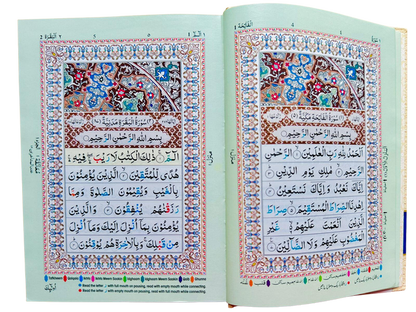 سُوْرَةُ الْفَاتِحَةِ مَكِّيَّةٌ
بِسْمِ اللّٰهِ الرَّحْمٰنِ الرَّحِيْمِ
اَلْحَمْدُ لِلّٰهِ رَبِّ الْعٰلَمِيْنَ الرَّحْمٰنِ
الرَّحِيْمِ مٰلِكِ يَوْمِ الدِّيْنِ
اِيَّاكَ نَعْبُدُ وَاِيَّاكَ نَسْتَعِيْنُ
اِهْدِنَا الصِّرَاطَ الْمُسْتَقِيْمَ صِرَاطَ
الَّذِيْنَ اَنْعَمْتَ عَلَيْهِمْ غَيْرِ
الْمَغْضُوْبِ عَلَيْهِمْ وَلَا الضَّآلِّيْنَ
الٓمّٓ ١
البقرة ٢
سُوْرَةُ الْبَقَرَةِ مَدَنِيَّةٌ
بِسْمِ اللّٰهِ الرَّحْمٰنِ الرَّحِيْمِ
الٓمّٓ ذٰلِكَ الْكِتٰبُ لَا رَيْبَ فِيْهِ
هُدًى لِّلْمُتَّقِيْنَ الَّذِيْنَ يُؤْمِنُوْنَ
بِالْغَيْبِ وَيُقِيْمُوْنَ الصَّلٰوةَ وَمِمَّا
رَزَقْنٰهُمْ يُنْفِقُوْنَ وَالَّذِيْنَ
يُؤْمِنُوْنَ بِمَآ اُنْزِلَ اِلَيْكَ وَمَآ اُنْزِلَ
مِنْ قَبْلِكَ وَبِالْاٰخِرَةِ هُمْ يُوْقِنُوْنَ
Read the letter with full mouth on pausing, read with empty mouth while connecting.
Read the letter with empty mouth on pausing, read with full mouth while connecting.